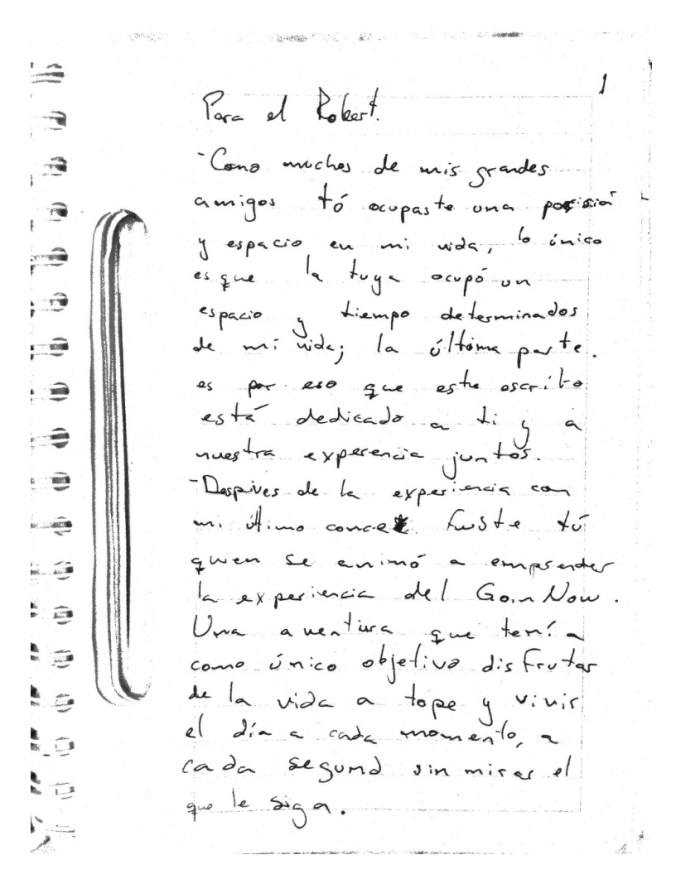 1
Para el Robert.
-Como muchos de mis grandes
amigos tú ocupaste una posisión
y espacio en mi vida, lo único
es que la tuya ocupó un
espacio y tiempo determinados
de mi vida; la última parte.
es por eso que este escrito
está dedicado a ti y a
nuestra experencia juntos.
-Despives de la experiencia con
mi último fuiste tú
quien se animó a emprender
la experiencia del Goin Now.
Una aventura que tenía
como único objetivo disfrutar
de la vida a tope y vivir
el día a cada momento, a
cada segund sin mirar el
que le siga.